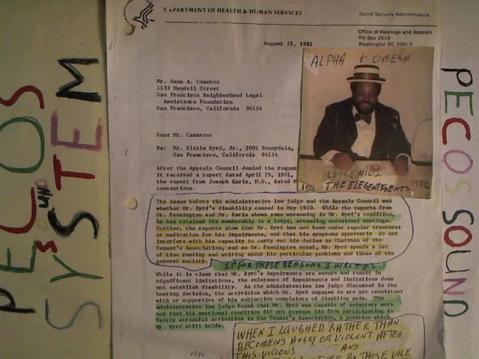 DEPARTMENT OF HEALTH & HUMAN SERVICES
Social Security Administration
Office of Hearings and Appeals
PO Box 2518
Washington DC 20013
August 21, 1981
Mr. Dana A. Cameron
1433 Mendell Street
San Francisco Neighborhood Legal
Assistance Foundation
San Francisco, California 94124
Dear Mr. Cameron:
Re: Mr. Elzie Byrd, Jr., 1001 Sunnydale,
San Francisco, California 94134
After the Appeals Council denied the reques
it received a report dated April 25, 1981,
the report from Joseph Karis, M.D., dated
contentions.
ALPHA + OMEGA
LODGE
THE ELEGENT GENTS
The issue before the administrative law judge and the Appeals Council was
whether Mr. Byrd's disability ceased in May 1980. While the reports from
Dr. Pennington and Dr. Karis show some worsening in Mr. Byrd's condition,
he has retained his membership in a lodge, attending occasional meetings.
Further, the reports show that Mr. Byrd has not been under regular treatment
or medication for his impairments, and that his symptoms apparently do not
interfere with his capacity to carry out his duties as Chairman of the
Tenant's Association, and as Dr. Pennington noted, Mr. Byrd spends a lot
of time reading and writing about his particular problems and those of the
general society.
IT FOR THESE REASONS I WRITE
While it is clear that Mr. Byrd's impairments are severe and result in
significant limitations, the existence of impairments and limitations does
not establish disability. As the administrative law judge discussed in the
hearing decision, the activities which Mr. Byrd engages in are not consistent
with or supportive of his subjective complaints of disabling pain. The
administrative law judge found that Mr. Byrd was capable of voluntary work
and that his emotional condition did not prevent him from participating in
fairly stressful activities in the Tenant's Association, a position which
Mr. Byrd still holds.
WHEN I LAUGHED RATHER THAN
BECOMEING ANGRY OR VIOLENT AFTER
THIS VICIOUS
AND
BY THOSE VILE
PECOS
SOUND
SYSTEM
PECOS SOUND